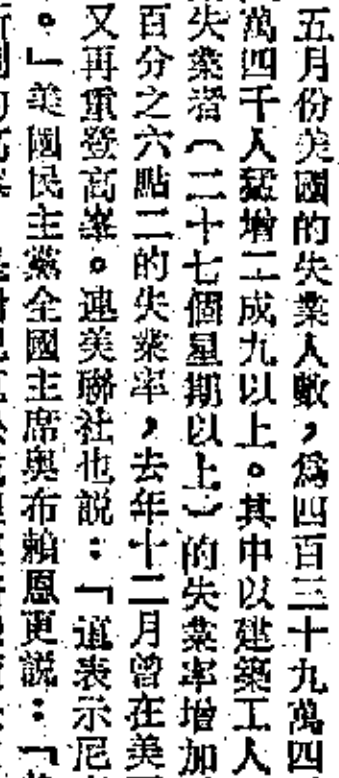 五月份美國的失業人數，爲四百三十九萬四
萬四千人猛增二成九以上。其中以建築工人
失業者（二十七個星期以上）的失業率增加
百分之六點二的失業率，去年十二月曾在美
又再重登高峯。連美聯社也説：「這表示尼
。」美國民主黨全國主席奥布賴恩更説：「